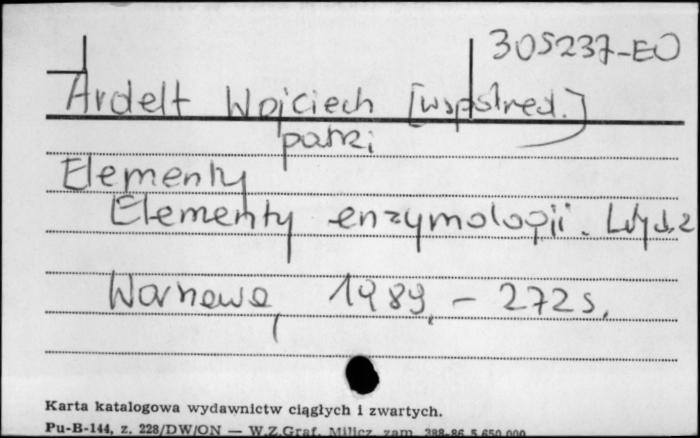 305237-EO
Ardelt Wojciech [współred.]
patrz
Elementy
Elementy enzymologii. Wyd. 2
Warszawa, 1989. - 272 s.
Karta katalogowa wydawnictw ciągłych i zwartych.
Pu-B-144, z. 228/DW/ON — W.Z.Graf. Milicz, zam. 388-86 5.650.000